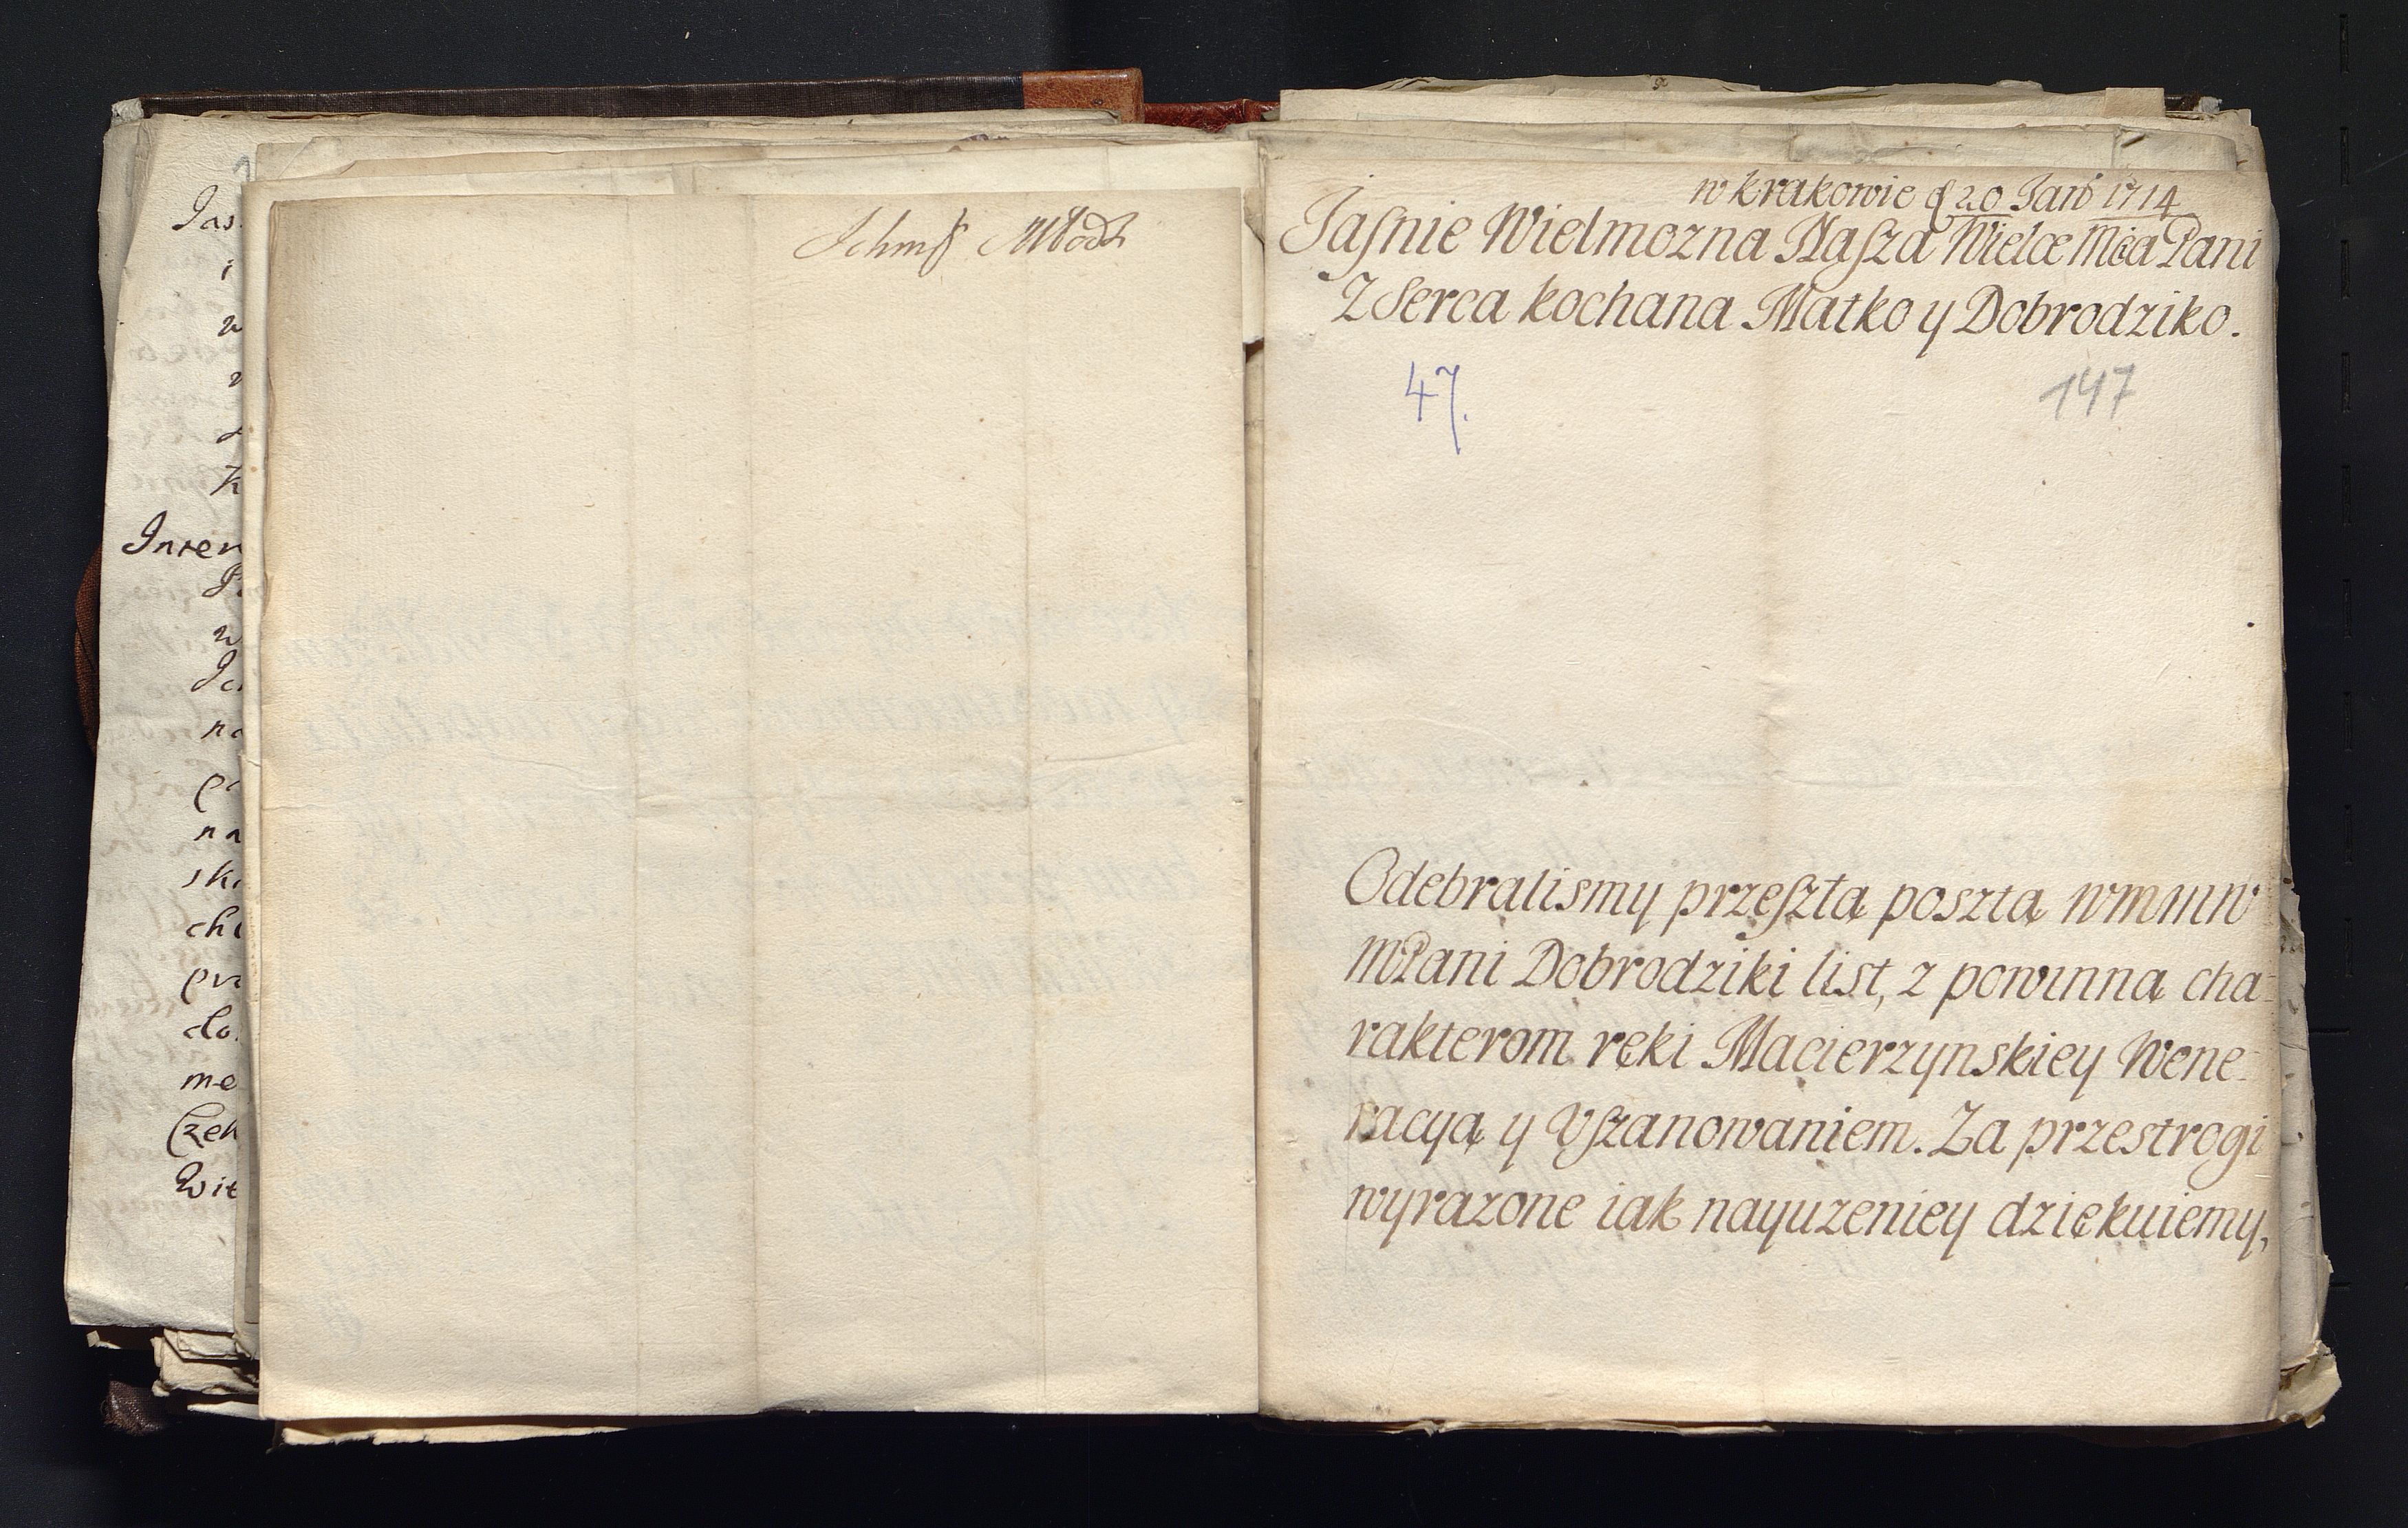 Jas
i
w
K
Inten
w
na
na
sk
cho
me
Czek
Wit
w krakowie d 20 Jan 1714
Jaſnie Wielmozna Naſza Wielce Mcia Pani
Z Serca kochana Matko y Dobrodziko.
47.
147
Odebralismy przeſzłą posztą WMMW
MPani Dobrodziki list, z powinną cha-
rakterom ręki Macierzynskiey Wene-
racyą y Vſzanowaniem. Za przestrogi
wyrazone iak nayuzeniey dziękuiemy,